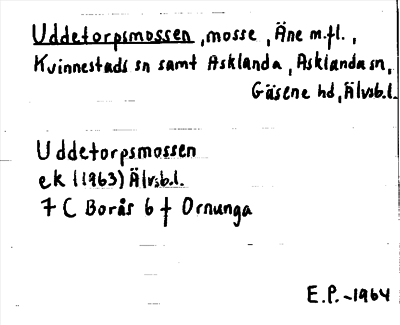 Uddetorpsmossen, mosse, Äne m.fl.,
Kvinnestads sn samt Asklanda, Asklanda sn,
Gäsene hd, Älvsb.l.
Uddetorpsmossen
ek (1963) Älvsb.l.
7 C Borås 6 f Ornunga
E.P. -1964